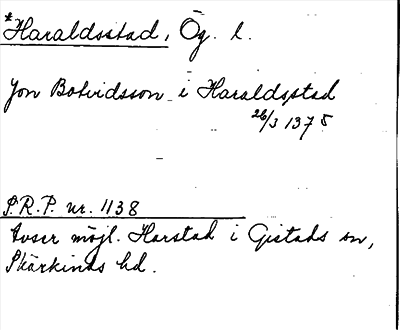 *Haraldsstad, Ög. l.
Jon Botvidsson i Haraldsstad
26/3 1375
S.R.P. nr. 1138
Avser möjl. Harstad i Gistads sn,
Skärkinds hd.